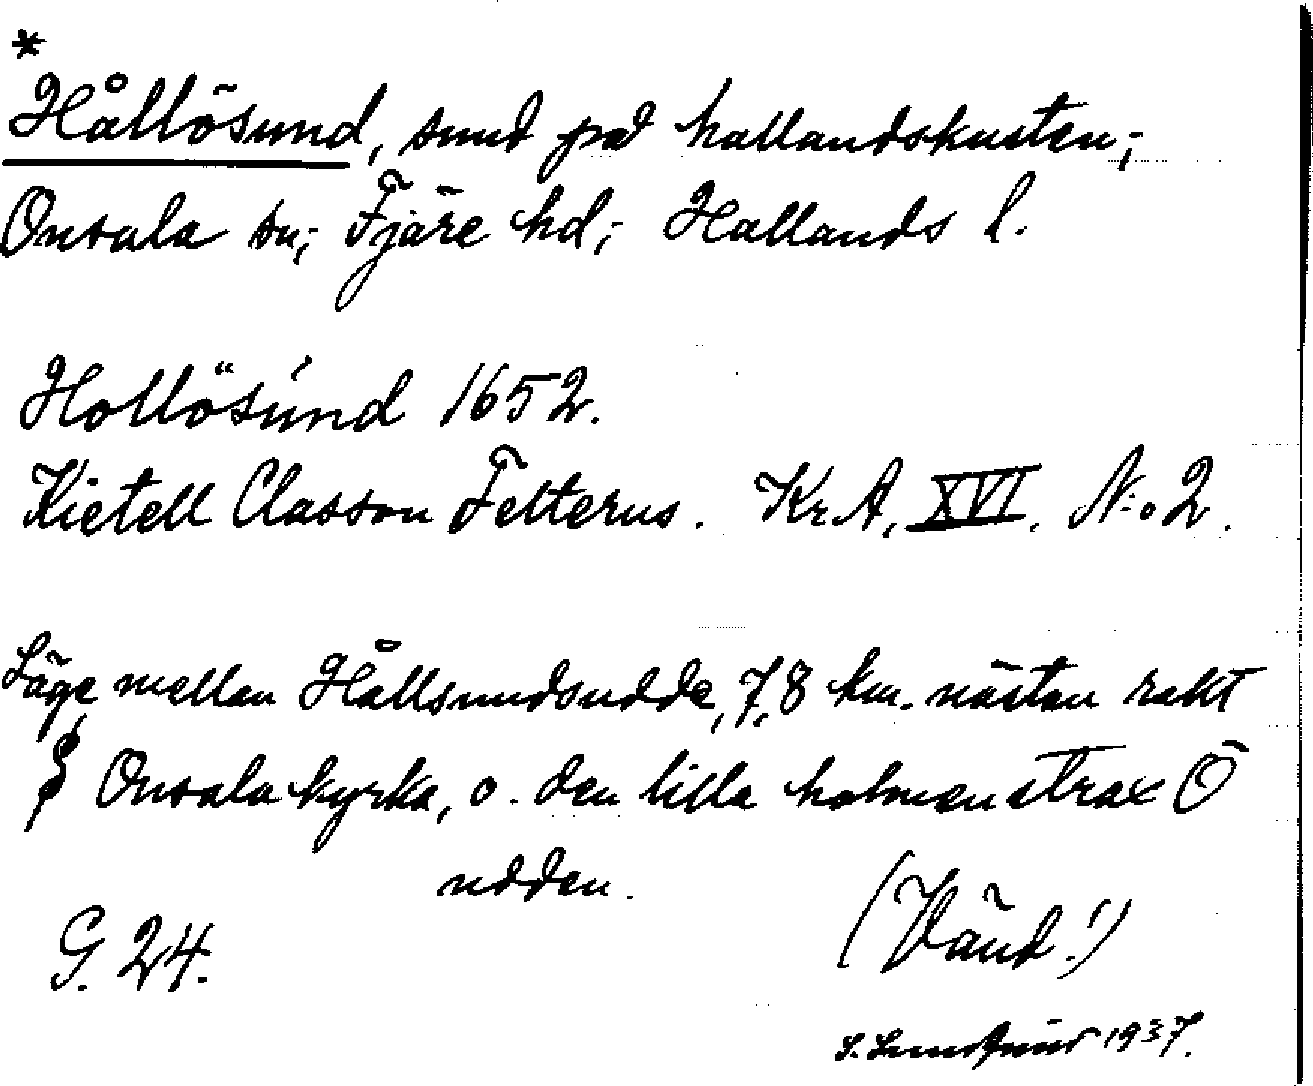 *
Hållösund, sund på hallandskusten;
Onsala sn; Fjäre hd; Hallands l.
Hollösund 1652.
Kietell Classon Felterus. Kr.A. XVI. N:o 2.
Läge mellan Hållsundsudde, 7,8 km. nästan rakt
S Onsala kyrka, o. den lilla holmen strax Ö
udden.
(Vänd!)
G. 24.
1937.